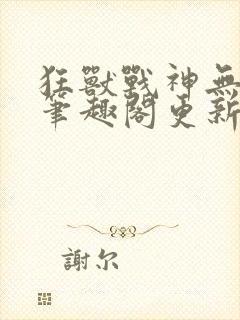 狂獸戰神無
筆趣閣更新
謝尔